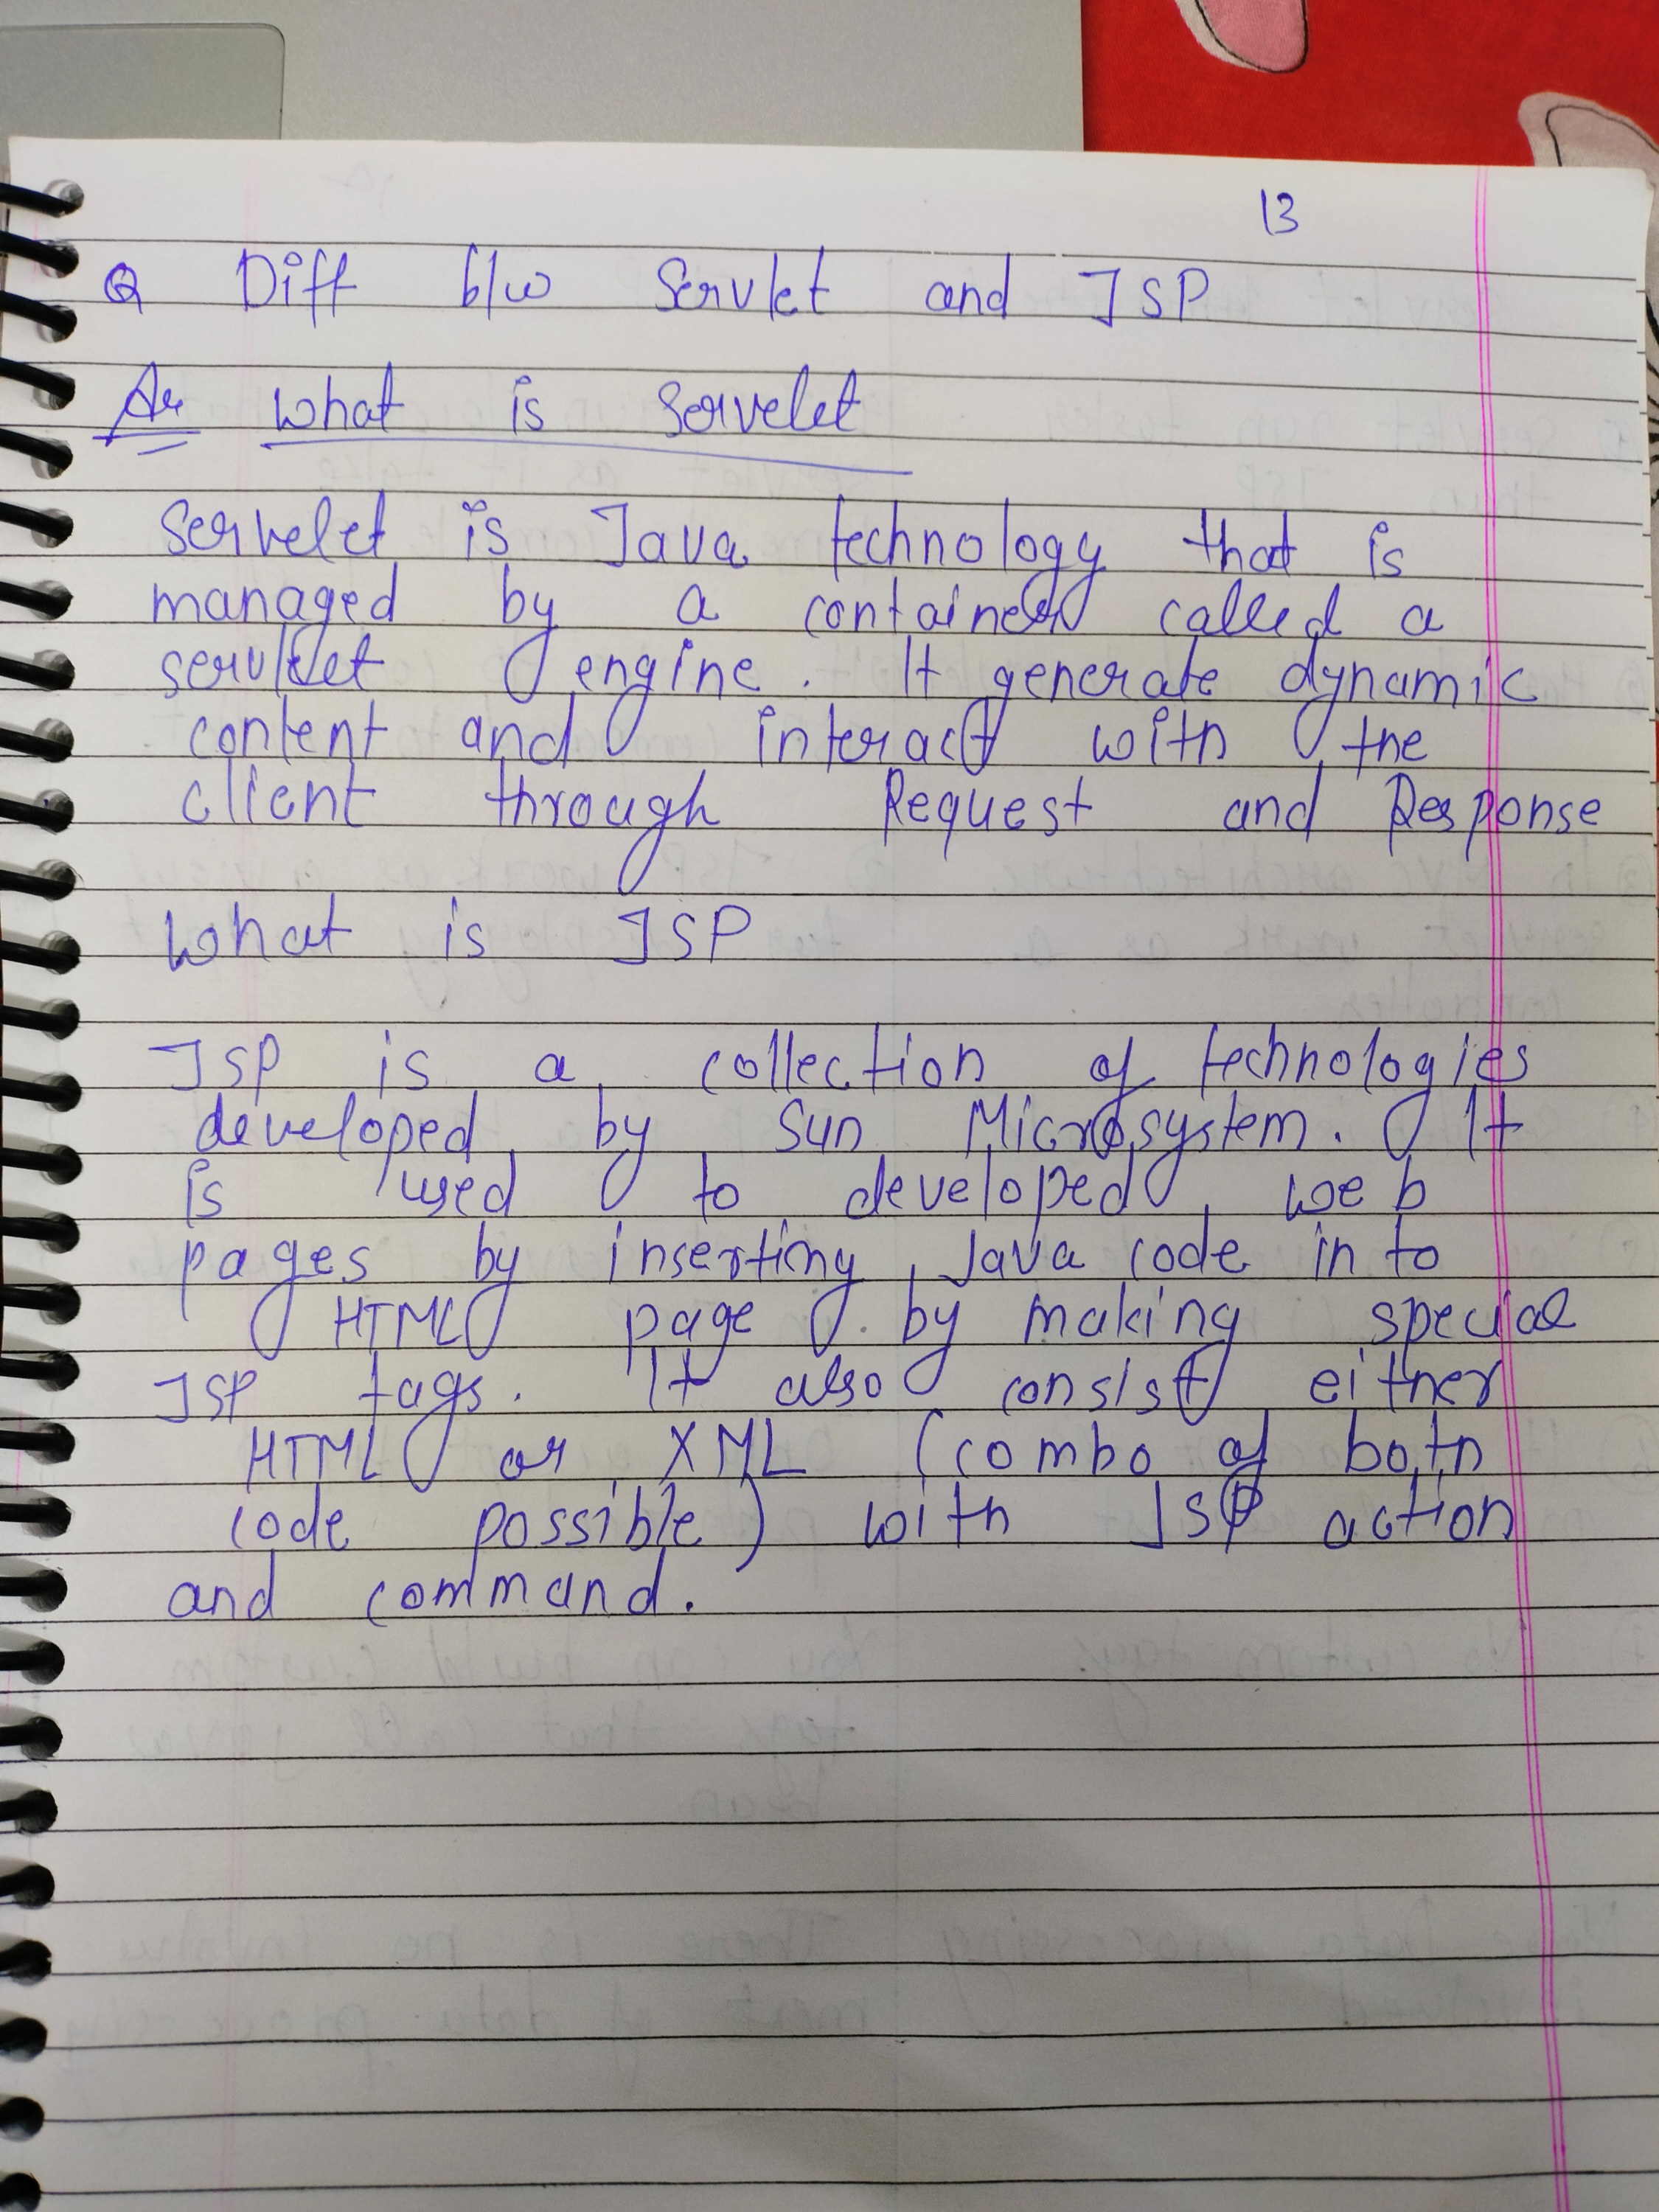 13
Q Diff b/w Servlet and JSP
An what is servelet
Servelet is Java technology that is
managed by a container called a
servlet engine. It generate dynamic
content and interact with the
client through Request and Response
What is JSP
JSP is a collection of technologies
developed by Sun Microsystem. It
is used to developed web
pages by inserting Java code in to
HTML page by making special
JSP tags. It also consist either
HTML or XML (combo of both
code possible) with JSP action
and command.